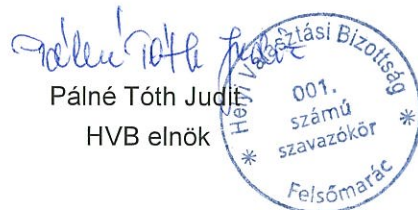 Pálné Tóth Judit
Pálné Tóth Judit
HVB elnök
Helyi Választási Bizottság
001.
számú
szavazókör
Felsőmarác